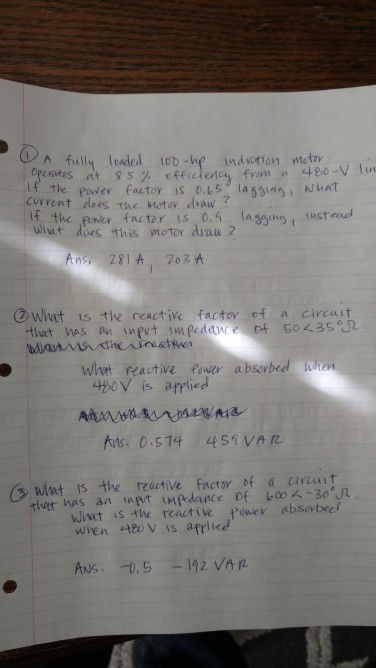 ① A fully loaded 100-hp induction motor
operates at 85% efficiency from a 480-V lin
If the power factor is 0.65 lagging, what
current does the motor draw?
If the power factor is 0.9 lagging, instead
what does this motor draw?
Ans. 281 A, 203 A
② What is the reactive factor of a circuit
that has an input impedance of 50<35°Ω.
What reactive power absorbed when
480V is applied
Ans. 0.574 459 VAR
③ What is the reactive factor of a circuit
that has an input impedance of 600<-30°Ω.
What is the reactive power absorbed
when 480 V is applied
ANS. -0.5 -192 VAR